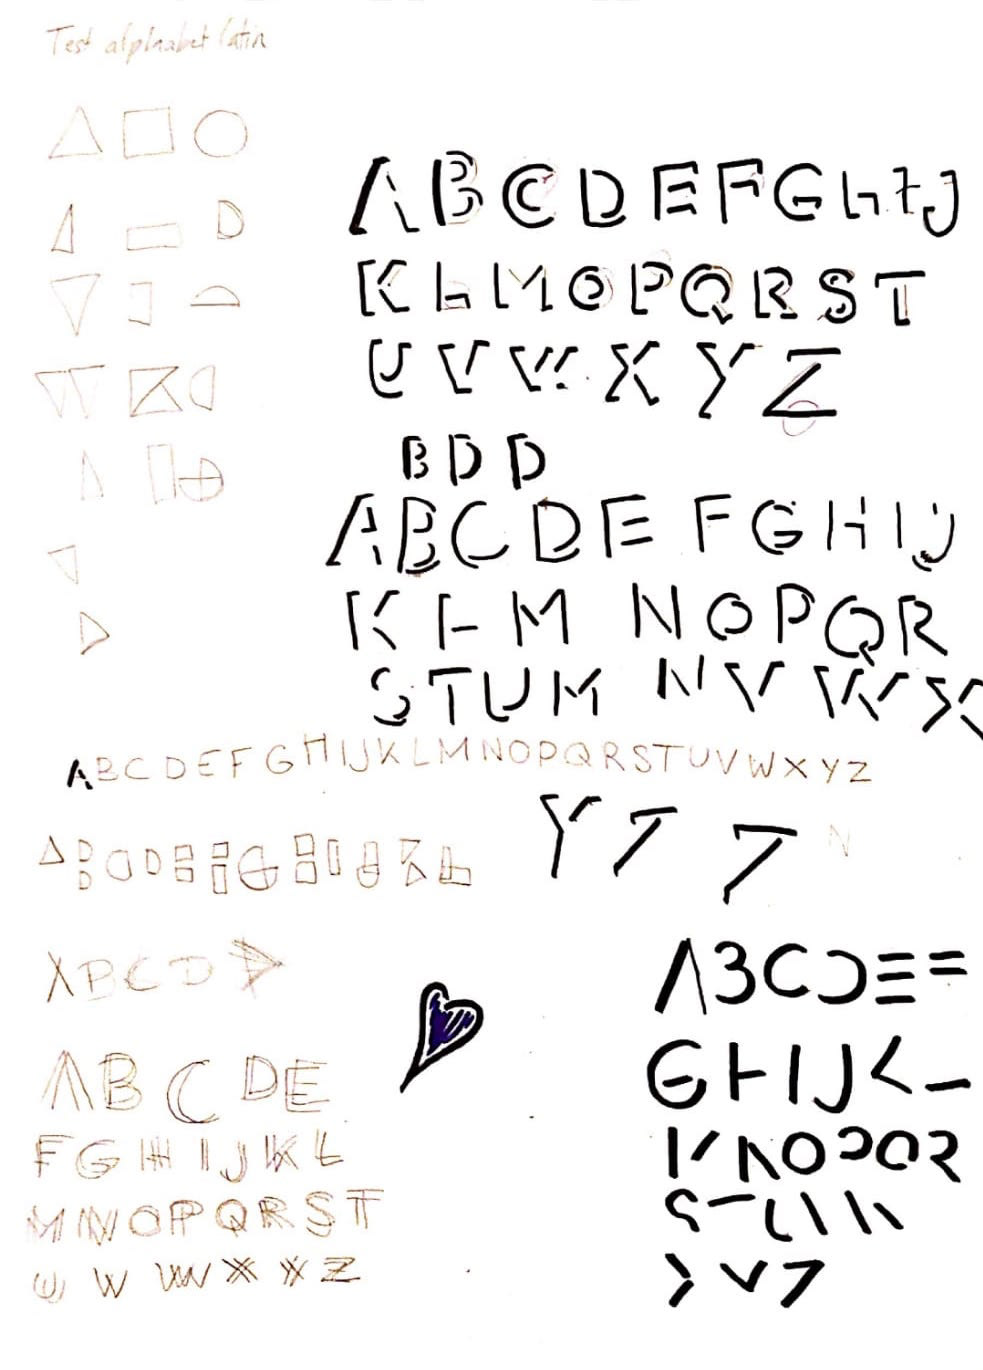 Test alphabet latin
A B C D E F G h I J
K L M O P Q R S T
U V W X Y Z
B D D
A B C D E F G H I J
K L M N O P Q R
S T U M N V W X
A B C D E F G H I J K L M N O P Q R S T U V W X Y Z
Y 7 7 N
A B C D
A B C D E
F G H I J K L
M N O P Q R S T
U W W X X Z
A B C D E F
G H I J K L
M N O P Q R
S T U V W
X Y Z